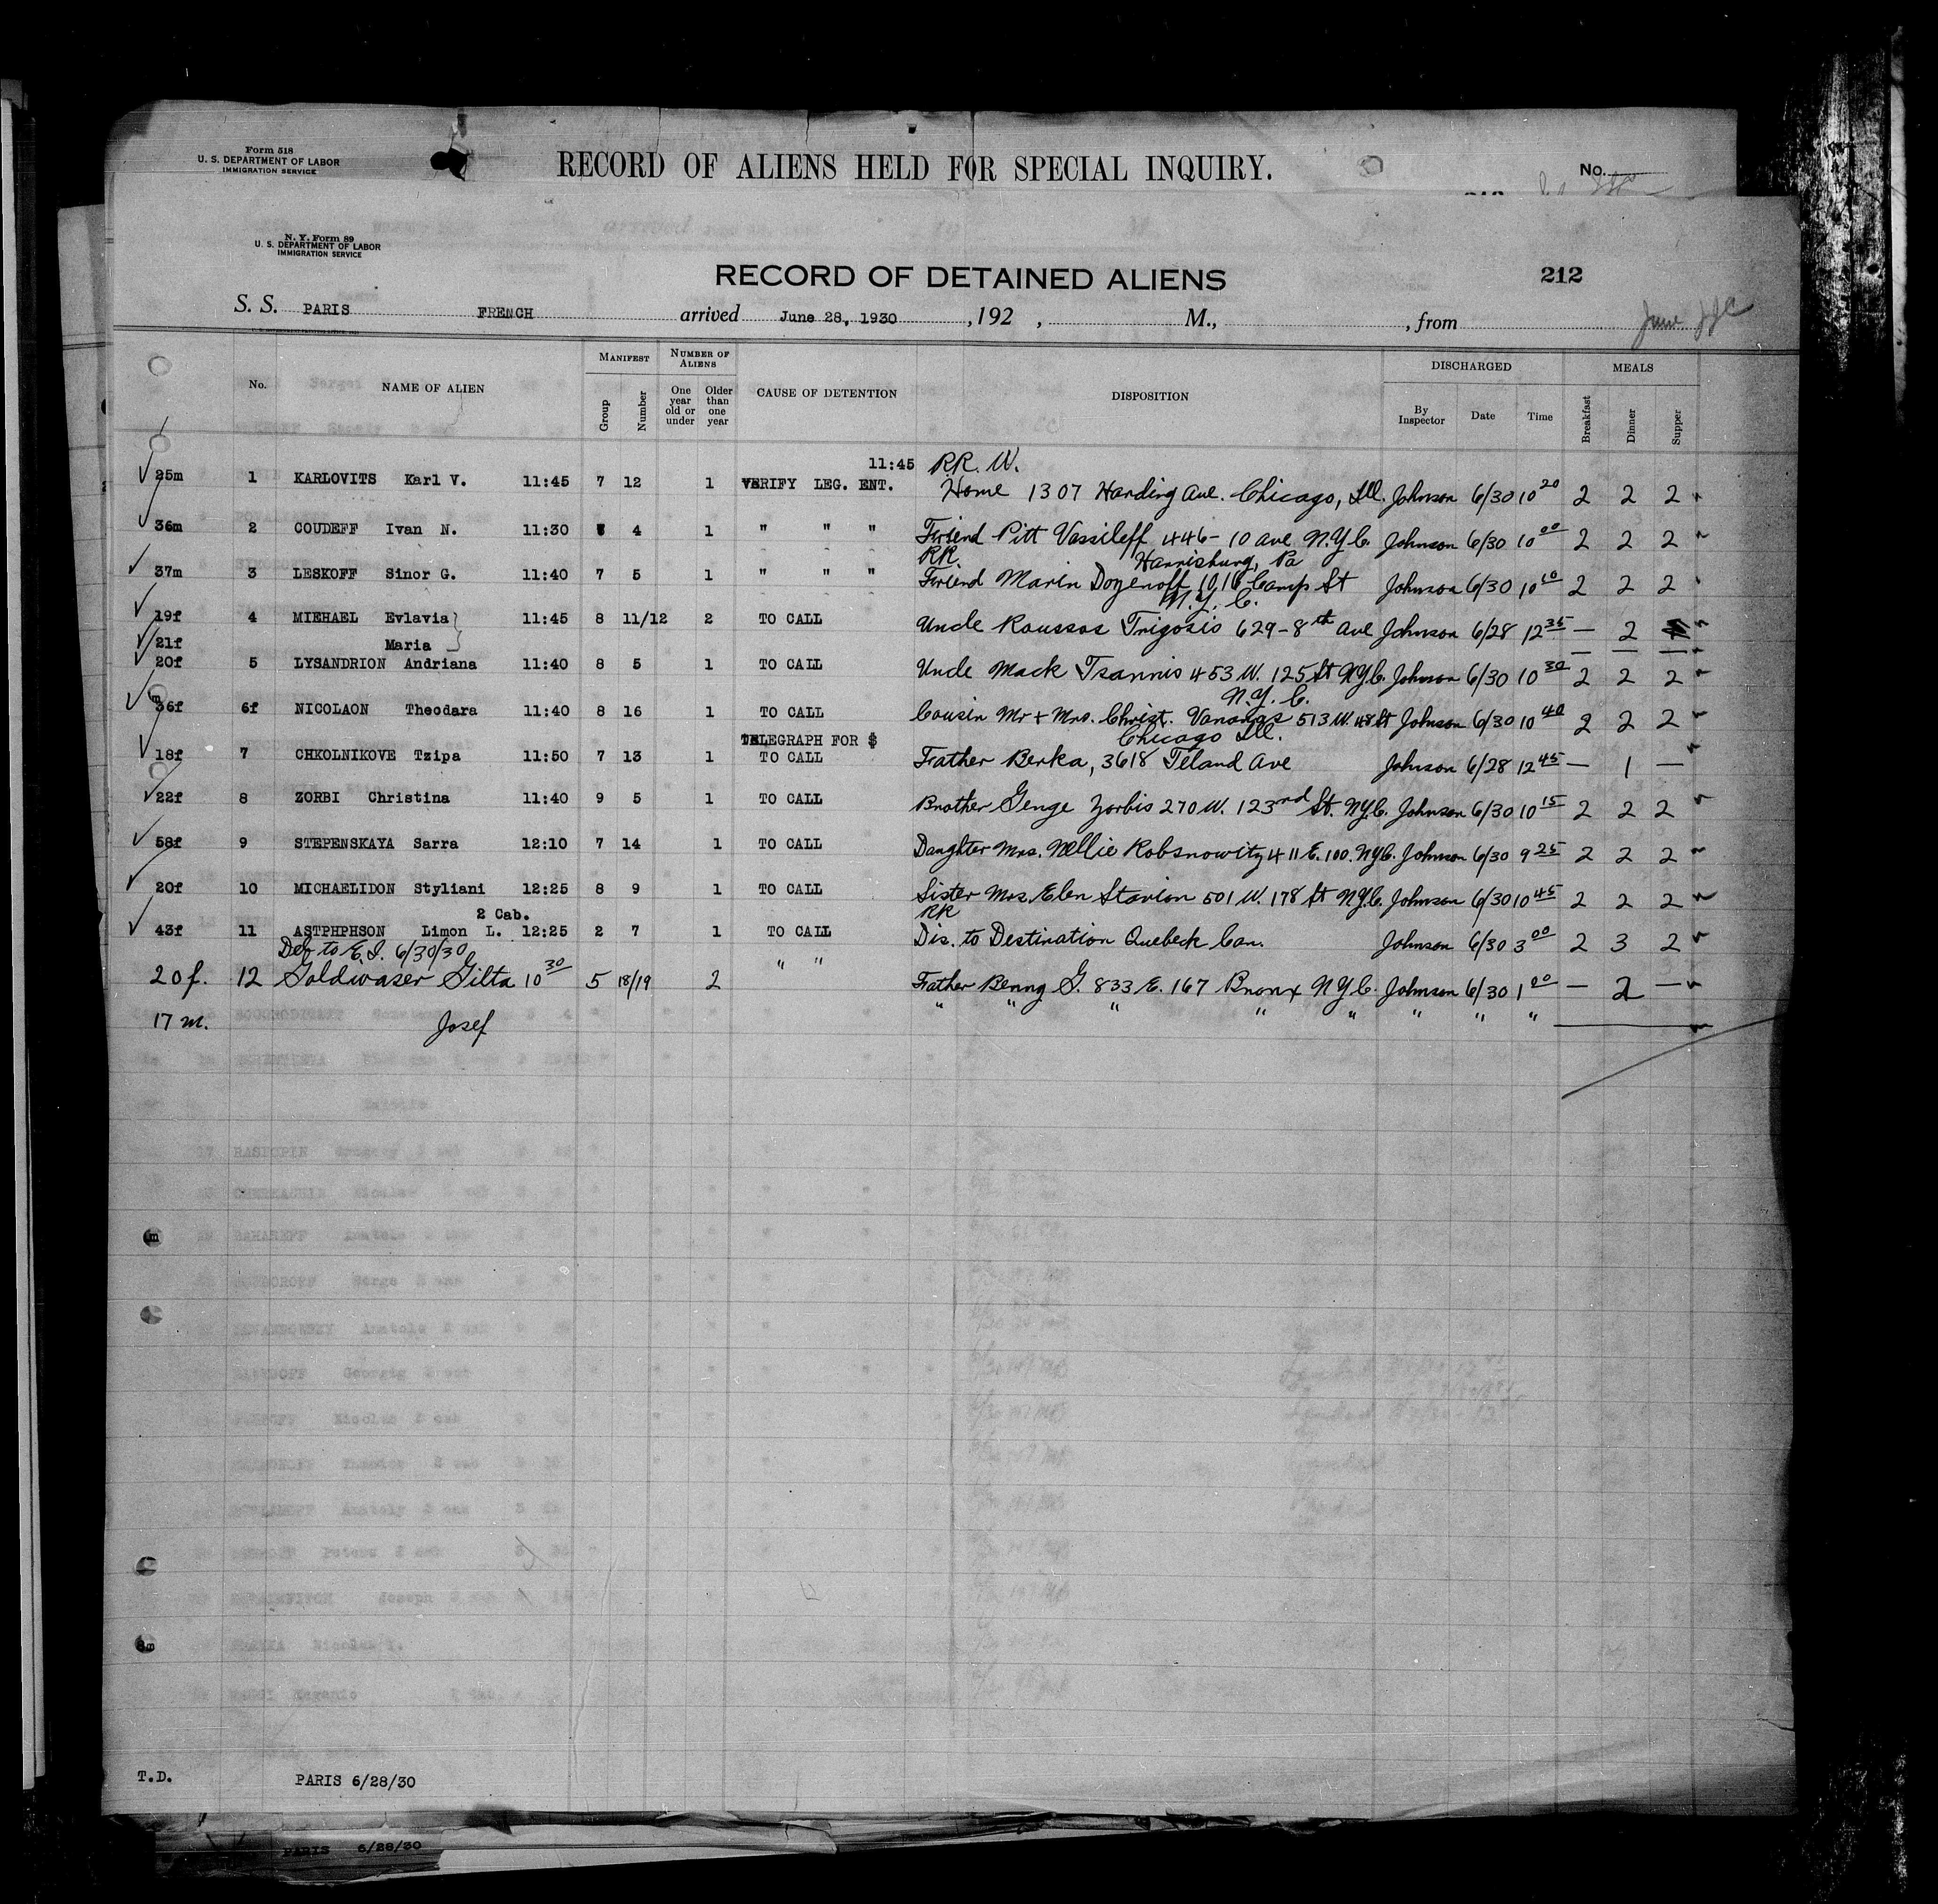 Form 518
U. S. DEPARTMENT OF LABOR
IMMIGRATION SERVICE
RECORD OF ALIENS HELD FOR SPECIAL INQUIRY.
No.
N. Y. Form 89
U. S. DEPARTMENT OF LABOR
IMMIGRATION SERVICE
RECORD OF DETAINED ALIENS
212
S. S. PARIS FRENCH arrived June 28, 1930 , 192 , M., , from June
No. NAME OF ALIEN MANIFEST Group Number NUMBER OF ALIENS One year old or under Older than one year CAUSE OF DETENTION DISPOSITION DISCHARGED By Inspector Date Time MEALS Breakfast Dinner Supper
11:45 RR. W.
25m 1 KARLOVITS Karl V. 11:45 7 12 1 VERIFY LEG. ENT. Home 1307 Harding Ave. Chicago, Ill. Johnson 6/30 10 20 2 2 2
36m 2 COUDEFF Ivan N. 11:30 4 1 " " " Friend Pitt Vassileff 446-10 ave N.Y.C. Johnson 6/30 10 00 2 2 2
RR. Harrisburg, Pa
37m 3 LESKOFF Sinor G. 11:40 7 5 1 " " " Friend Marin Dozenoff 1016 Camp St Johnson 6/30 10 10 2 2 2
N.Y.C.
19f 4 MIEHAEL Evlavia 11:45 8 11/12 2 TO CALL Uncle Roussos Trigosis 629-8th Ave Johnson 6/28 12 35 — 2
21f Maria
20f 5 LYSANDRION Andriana 11:40 8 5 1 TO CALL Uncle Mack Tsannis 453 W. 125 St N.Y.C. Johnson 6/30 10 30 2 2 2
N.Y.C.
m
36f 6f NICOLAON Theodara 11:40 8 16 1 TO CALL Cousin Mr + Mrs. Christ. Vanargas 513 W. 48 St Johnson 6/30 10 40 2 2 2
TELEGRAPH FOR $ Chicago Ill.
18f 7 CHKOLNIKOVE Tzipa 11:50 7 13 1 TO CALL Father Berka, 3618 Teland Ave Johnson 6/28 12 45 — 1 —
22f 8 ZORBI Christina 11:40 9 5 1 TO CALL Brother George Zorbis 270 W. 123rd St. N.Y.C. Johnson 6/30 10 15 2 2 2
58f 9 STEPENSKAYA Sarra 12:10 7 14 1 TO CALL Daughter Mrs. Nellie Robsnowitz 411 E. 100. N.Y.C. Johnson 6/30 9 25 2 2 2
20f 10 MICHAELIDON Styliani 12:25 8 9 1 TO CALL Sister Mrs. Elen Stavion 501 W. 178 St N.Y.C. Johnson 6/30 10 45 2 2 2
2 Cab. RR
43f 11 ASTPHPHSON Limon L. 12:25 2 7 1 TO CALL Dis. to Destination Quebeck Can. Johnson 6/30 3 00 2 3 2
Def to E.I. 6/30/30 " "
20f. 12 Goldwaser Gilta 10 30 5 18/19 2 Father Benny G. 833 E. 167 Bronx N.Y.C. Johnson 6/30 1 00 — 2 —
17 m. Josef " " " " " " " "
T.D. PARIS 6/28/30
PARIS 6/28/30